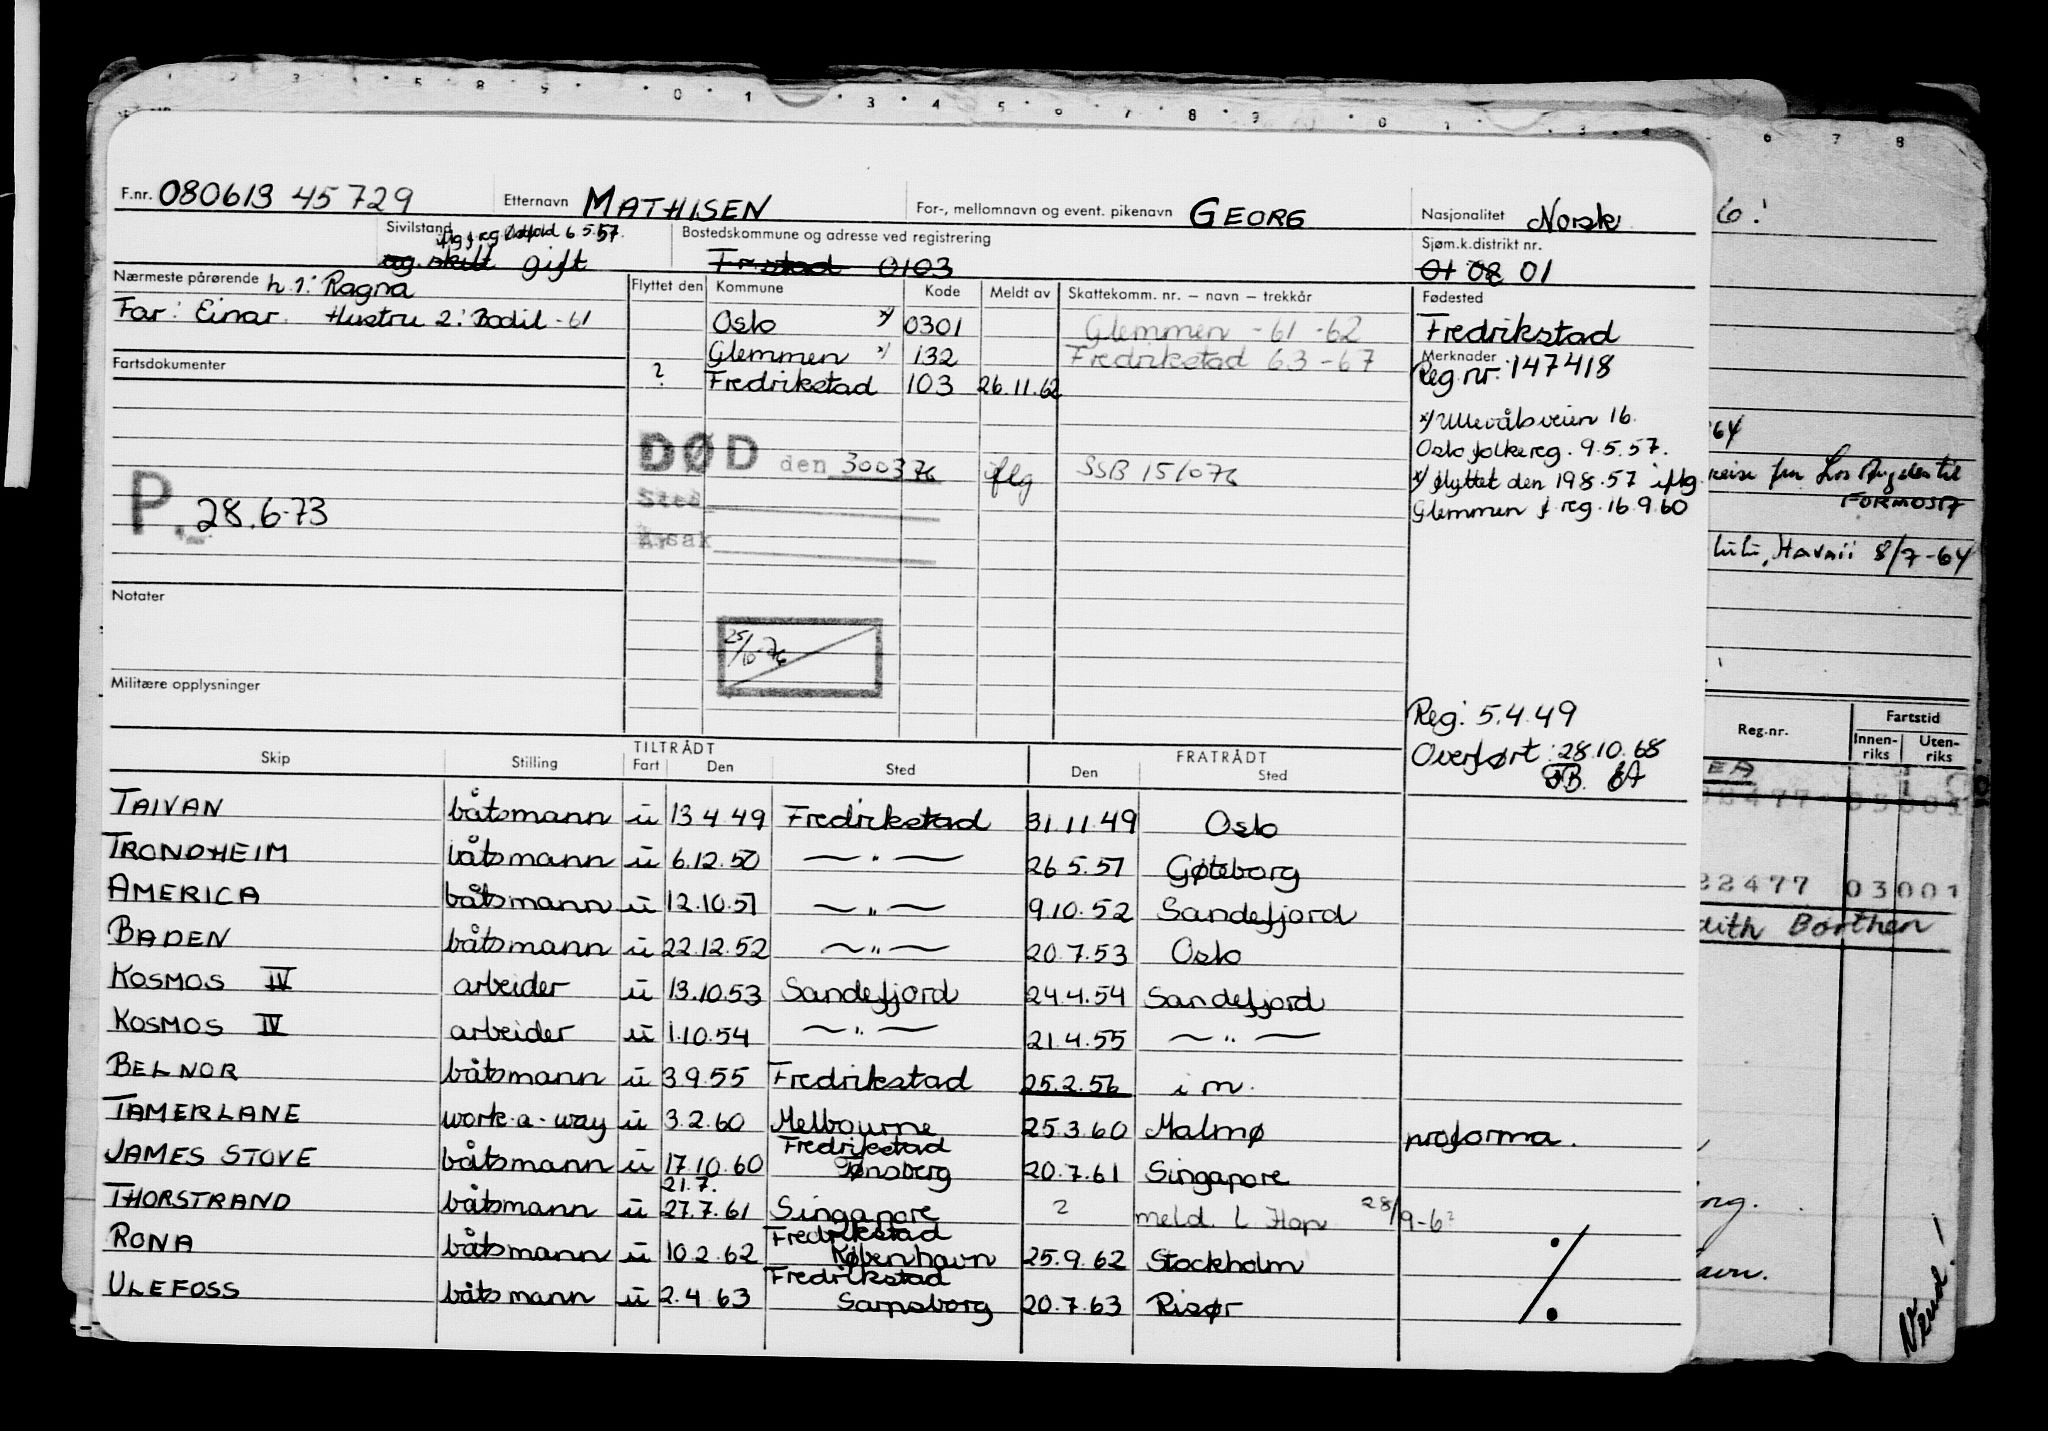 F.nr. 080613 45729 Etternavn MATHISEN For-, mellomnavn og event. pikenavn GEORG Nasjonalitet Norsk
Sivilstand gift Bostedskommune og adresse ved registrering Fr.stad 0103 Sjøm.k.distrikt nr. 01 08 01
Nærmeste pårørende h. 1: Ragna Flyttet den Kommune Kode Meldt av Skattekomm. nr. — navn — trekkår Fødested
Far: Einar. Hustru 2: Bodil -61 Oslo x/ 0301 Glemmen -61 -62 Fredrikstad
Glemmen x/ 132 Fredrikstad 63-67 Merknader
Fartsdokumenter ? Fredrikstad 103 26.11.62 Reg.nr: 147418
x/ Ullevålsveien 16.
Oslo folkereg. 9.5.57.
DØD den 300376 iflg SSB 151076 x/ flyttet den 198.57 iflg.
P. 28.6.73 Sted Glemmen f. reg. 16.9.60
Årsak
Notater
25/10-76
Militære opplysninger
Reg: 5.4.49
Overført: 28.10.68
TILTRÅDT FRATRÅDT
Skip Stilling Fart Den Sted Den Sted
TAIVAN båtsmann u 13 4 49 Fredrikstad 31.11.49 Oslo
TRONDHEIM båtsmann u 6.12.50 — " — 26 5.51 Gøteborg
AMERICA båtsmann u 12.10.51 — " — 9.10.52 Sandefjord
BADEN båtsmann u 22.12.52 — " — 20.7.53 Oslo
KOSMOS IV arbeider u 13.10.53 Sandefjord 24.4.54 Sandefjord
KOSMOS IV arbeider u 1.10.54 — " — 21.4.55 — " —
BELNOR båtsmann u 3.9.55 Fredrikstad 25.2.56 i m.
TAMERLANE work-a-way u 3.2.60 Melbourne 25.3.60 Malmø proforma.
JAMES STOVE båtsmann u 17.10.60 Fredrikstad Tønsberg 20.7.61 Singapore
THORSTRAND båtsmann u 21.7. 27.7.61 Singapore ? meld. 28/9-6
RONA båtsmann u 10.2.62 Fredrikstad København 25.9.62 Stockholm
ULEFOSS båtsmann u 2.4.63 Fredrikstad Sarpsborg 20.7.63 Risør
6!
64
reise fra Los Angeles til
FORMOSA
Hawaii 8/7-64
Reg.nr. Fartstid
Innen-riks Uten-riks
22477 03001
Borthen
Vend!